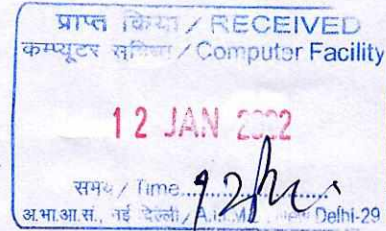 प्राप्त किया / RECEIVED
कम्प्यूटर सुविधा / Computer Facility
12 JAN 2022
समय / Time
अ.भा.आ.सं., नई दिल्ली / A.I.I.M.S., New Delhi-29